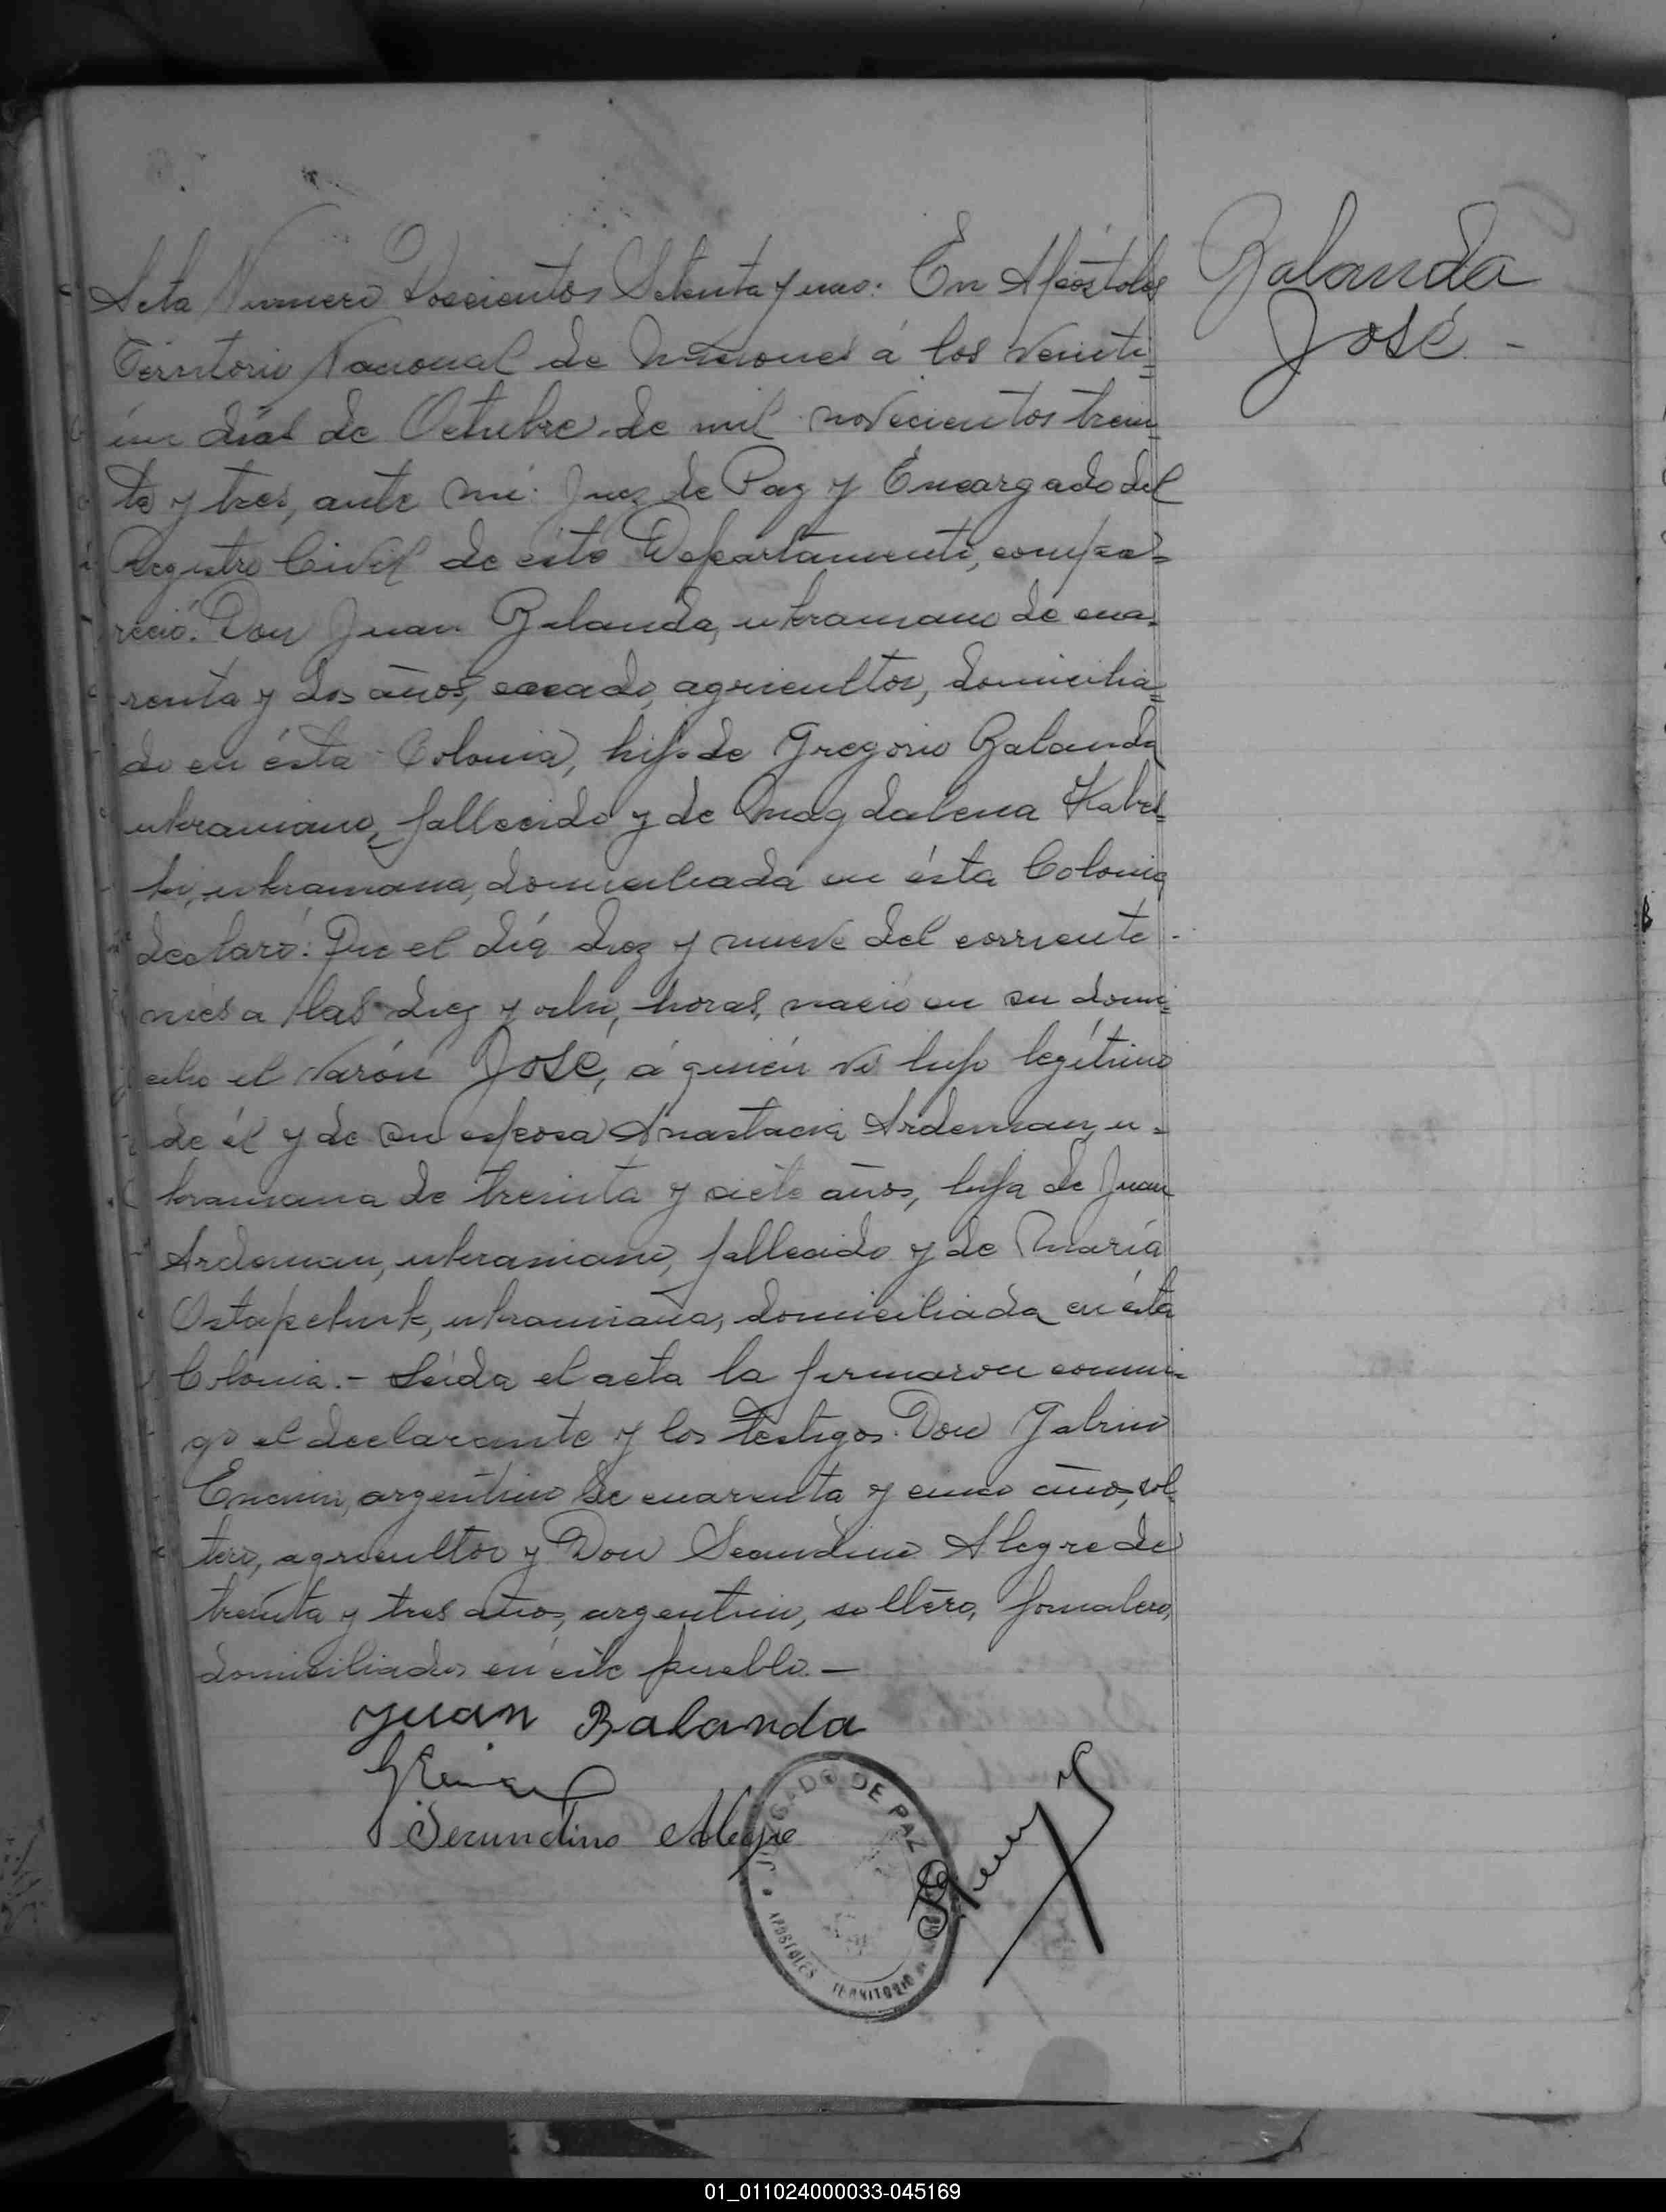 Acta Numero Doscientos Setenta y uno: En Apóstoles
Balanda
José -
Territorio Nacional de Misiones á los veinti=
ún días de Octubre de mil novecientos trein
ta y tres, ante mí: Juez de Paz y Encargado del
Registro Civil de éste Departamento, compa=
reció: Don Juan Balanda, ukraniano de cua=
renta y dos años, casado, agricultor, domicilia=
do en ésta Colonia, hijo de Gregorio Balanda
ukraniano, fallecido y de Magdalena
ukraniana, domiciliada en ésta Colonia
declaró: Que el día diez y nueve del corriente
mes a las diez y ocho, horas, nació en su domi=
cilio el varón José, á quién vi hijo legítimo
de él y de su esposa Anastacia Ardeman, u=
kraniana de treinta y siete años, hija de Juan
Ardeman, ukraniano, fallecido y de María
Ostapchuk, ukraniana, domiciliada en ésta
Colonia.- Leída el acta la firmaron conmi=
go el declarante y los testigos: Don Gabino
argentino de cuarenta y cinco años, sol
tero, agricultor y Don Secundino Alegre de
treinta y tres años, argentino, soltero, jornalero,
domiciliados en éste pueblo.-
Juan Balanda
Secundino Alegre
JUZGADO DE PAZ
APOSTOLES TERRITORIO DE
01_011024000033-045169